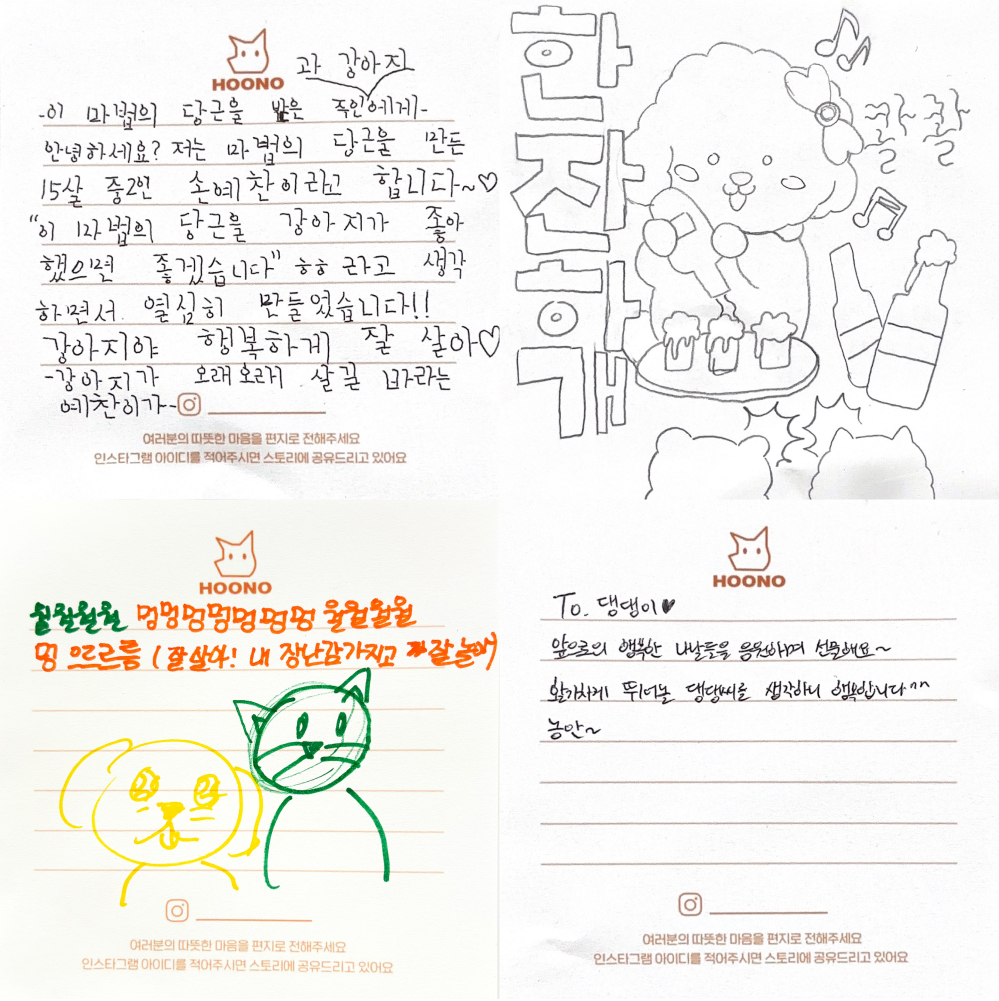 HOONO
과 강아지
-이 마법의 당근을 받은 주인에게-
안녕하세요? 저는 마법의 당근을 만든
15살 중2인 손예찬이라고 합니다~♡
"이 마법의 당근을 강아지가 좋아
했으면 좋겠습니다" ㅎㅎ 라고 생각
하면서 열심히 만들었습니다!!
강아지야 행복하게 잘 살아♡
-강아지가 오래오래 살길 바라는
예찬이가-
여러분의 따뜻한 마음을 편지로 전해주세요
인스타그램 아이디를 적어주시면 스토리에 공유드리고 있어요
한잔하개
콸콸
HOONO
월월월
멍멍멍멍멍멍멍 월월월월
멍 으르르릉 (잘살아! 내 장난감가지고 잘놀아)
여러분의 따뜻한 마음을 편지로 전해주세요
인스타그램 아이디를 적어주시면 스토리에 공유드리고 있어요
HOONO
To. 댕댕이♥
앞으로의 행복한 나날들을 응원하며 선물해요~
활기차게 뛰어놀 댕댕씨를 생각하니 행복합니다^^
농안~
여러분의 따뜻한 마음을 편지로 전해주세요
인스타그램 아이디를 적어주시면 스토리에 공유드리고 있어요